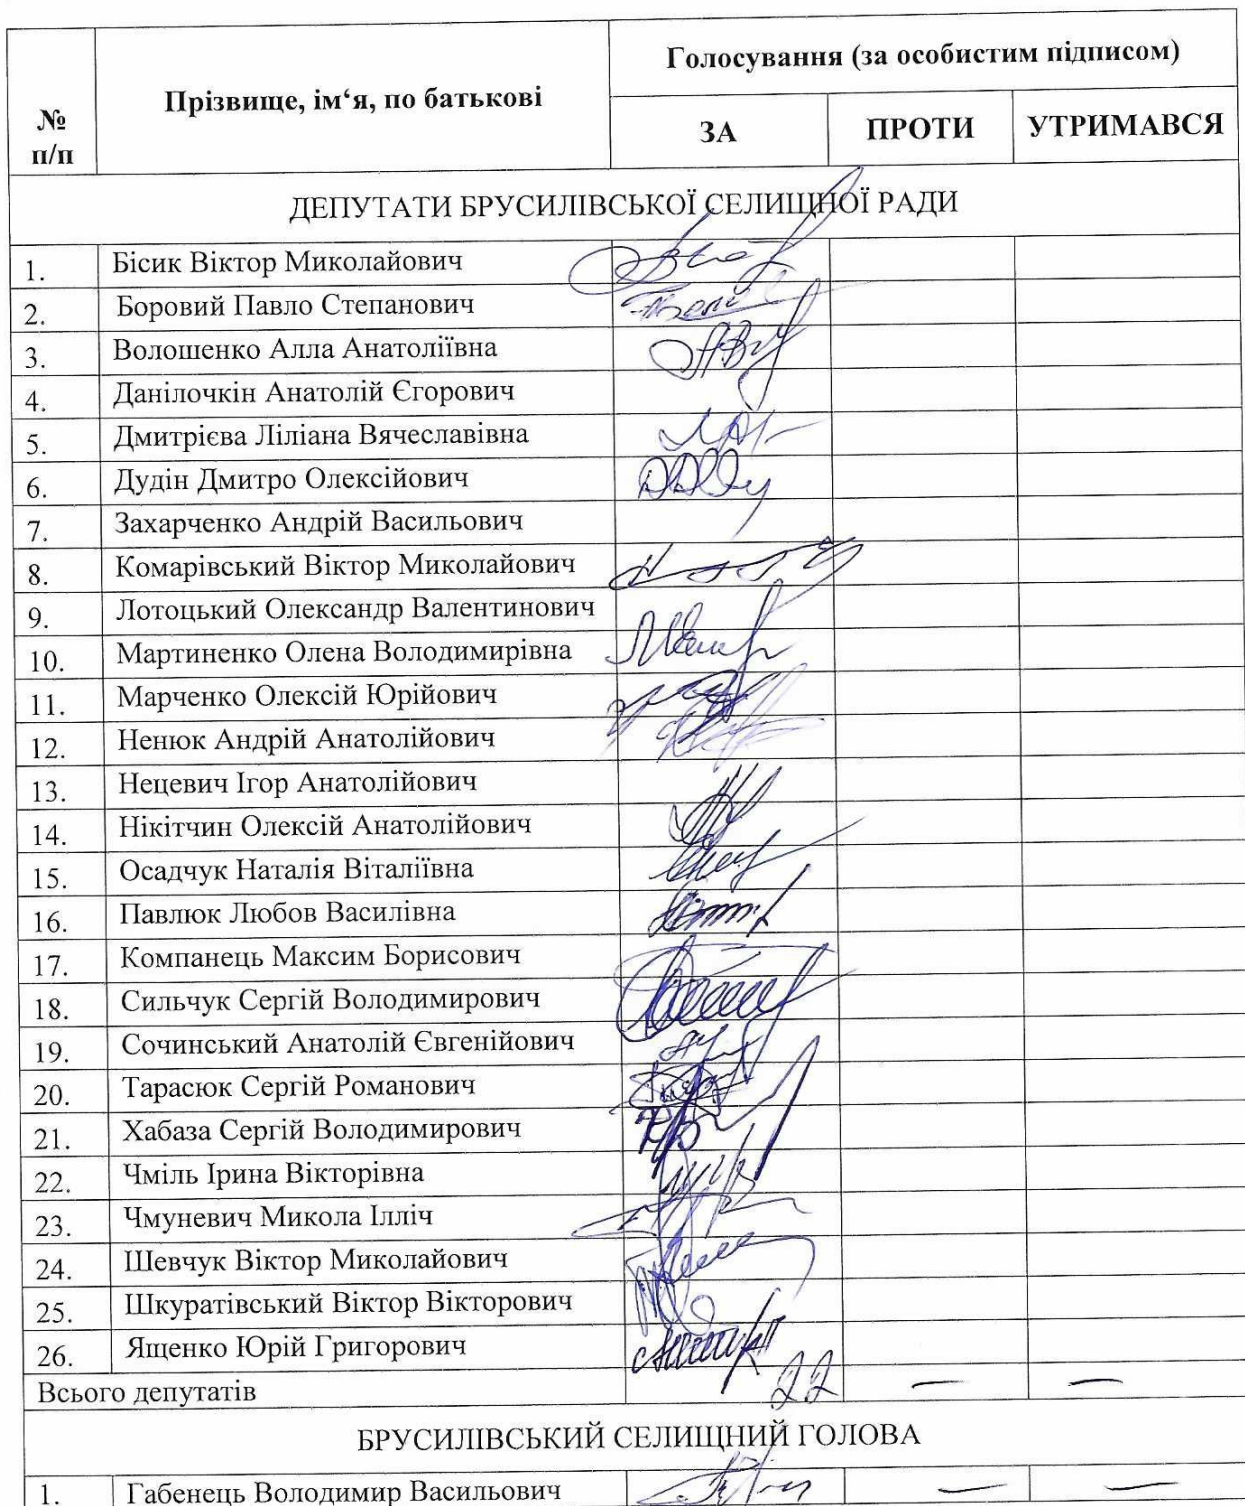 № п/п
Прізвище, ім‘я, по батькові
Голосування (за особистим підписом)
ЗА ПРОТИ УТРИМАВСЯ
ДЕПУТАТИ БРУСИЛІВСЬКОЇ СЕЛИЩНОЇ РАДИ
1. Бісик Віктор Миколайович
2. Боровий Павло Степанович
3. Волошенко Алла Анатоліївна
4. Данілочкін Анатолій Єгорович
5. Дмитрієва Ліліана Вячеславівна
6. Дудін Дмитро Олексійович
7. Захарченко Андрій Васильович
8. Комарівський Віктор Миколайович
9. Лотоцький Олександр Валентинович
10. Мартиненко Олена Володимирівна
11. Марченко Олексій Юрійович
12. Ненюк Андрій Анатолійович
13. Нецевич Ігор Анатолійович
14. Нікітчин Олексій Анатолійович
15. Осадчук Наталія Віталіївна
16. Павлюк Любов Василівна
17. Компанець Максим Борисович
18. Сильчук Сергій Володимирович
19. Сочинський Анатолій Євгенійович
20. Тарасюк Сергій Романович
21. Хабаза Сергій Володимирович
22. Чміль Ірина Вікторівна
23. Чмуневич Микола Ілліч
24. Шевчук Віктор Миколайович
25. Шкуратівський Віктор Вікторович
26. Ященко Юрій Григорович
Всього депутатів 22 — —
БРУСИЛІВСЬКИЙ СЕЛИЩНИЙ ГОЛОВА
1. Габенець Володимир Васильович — —